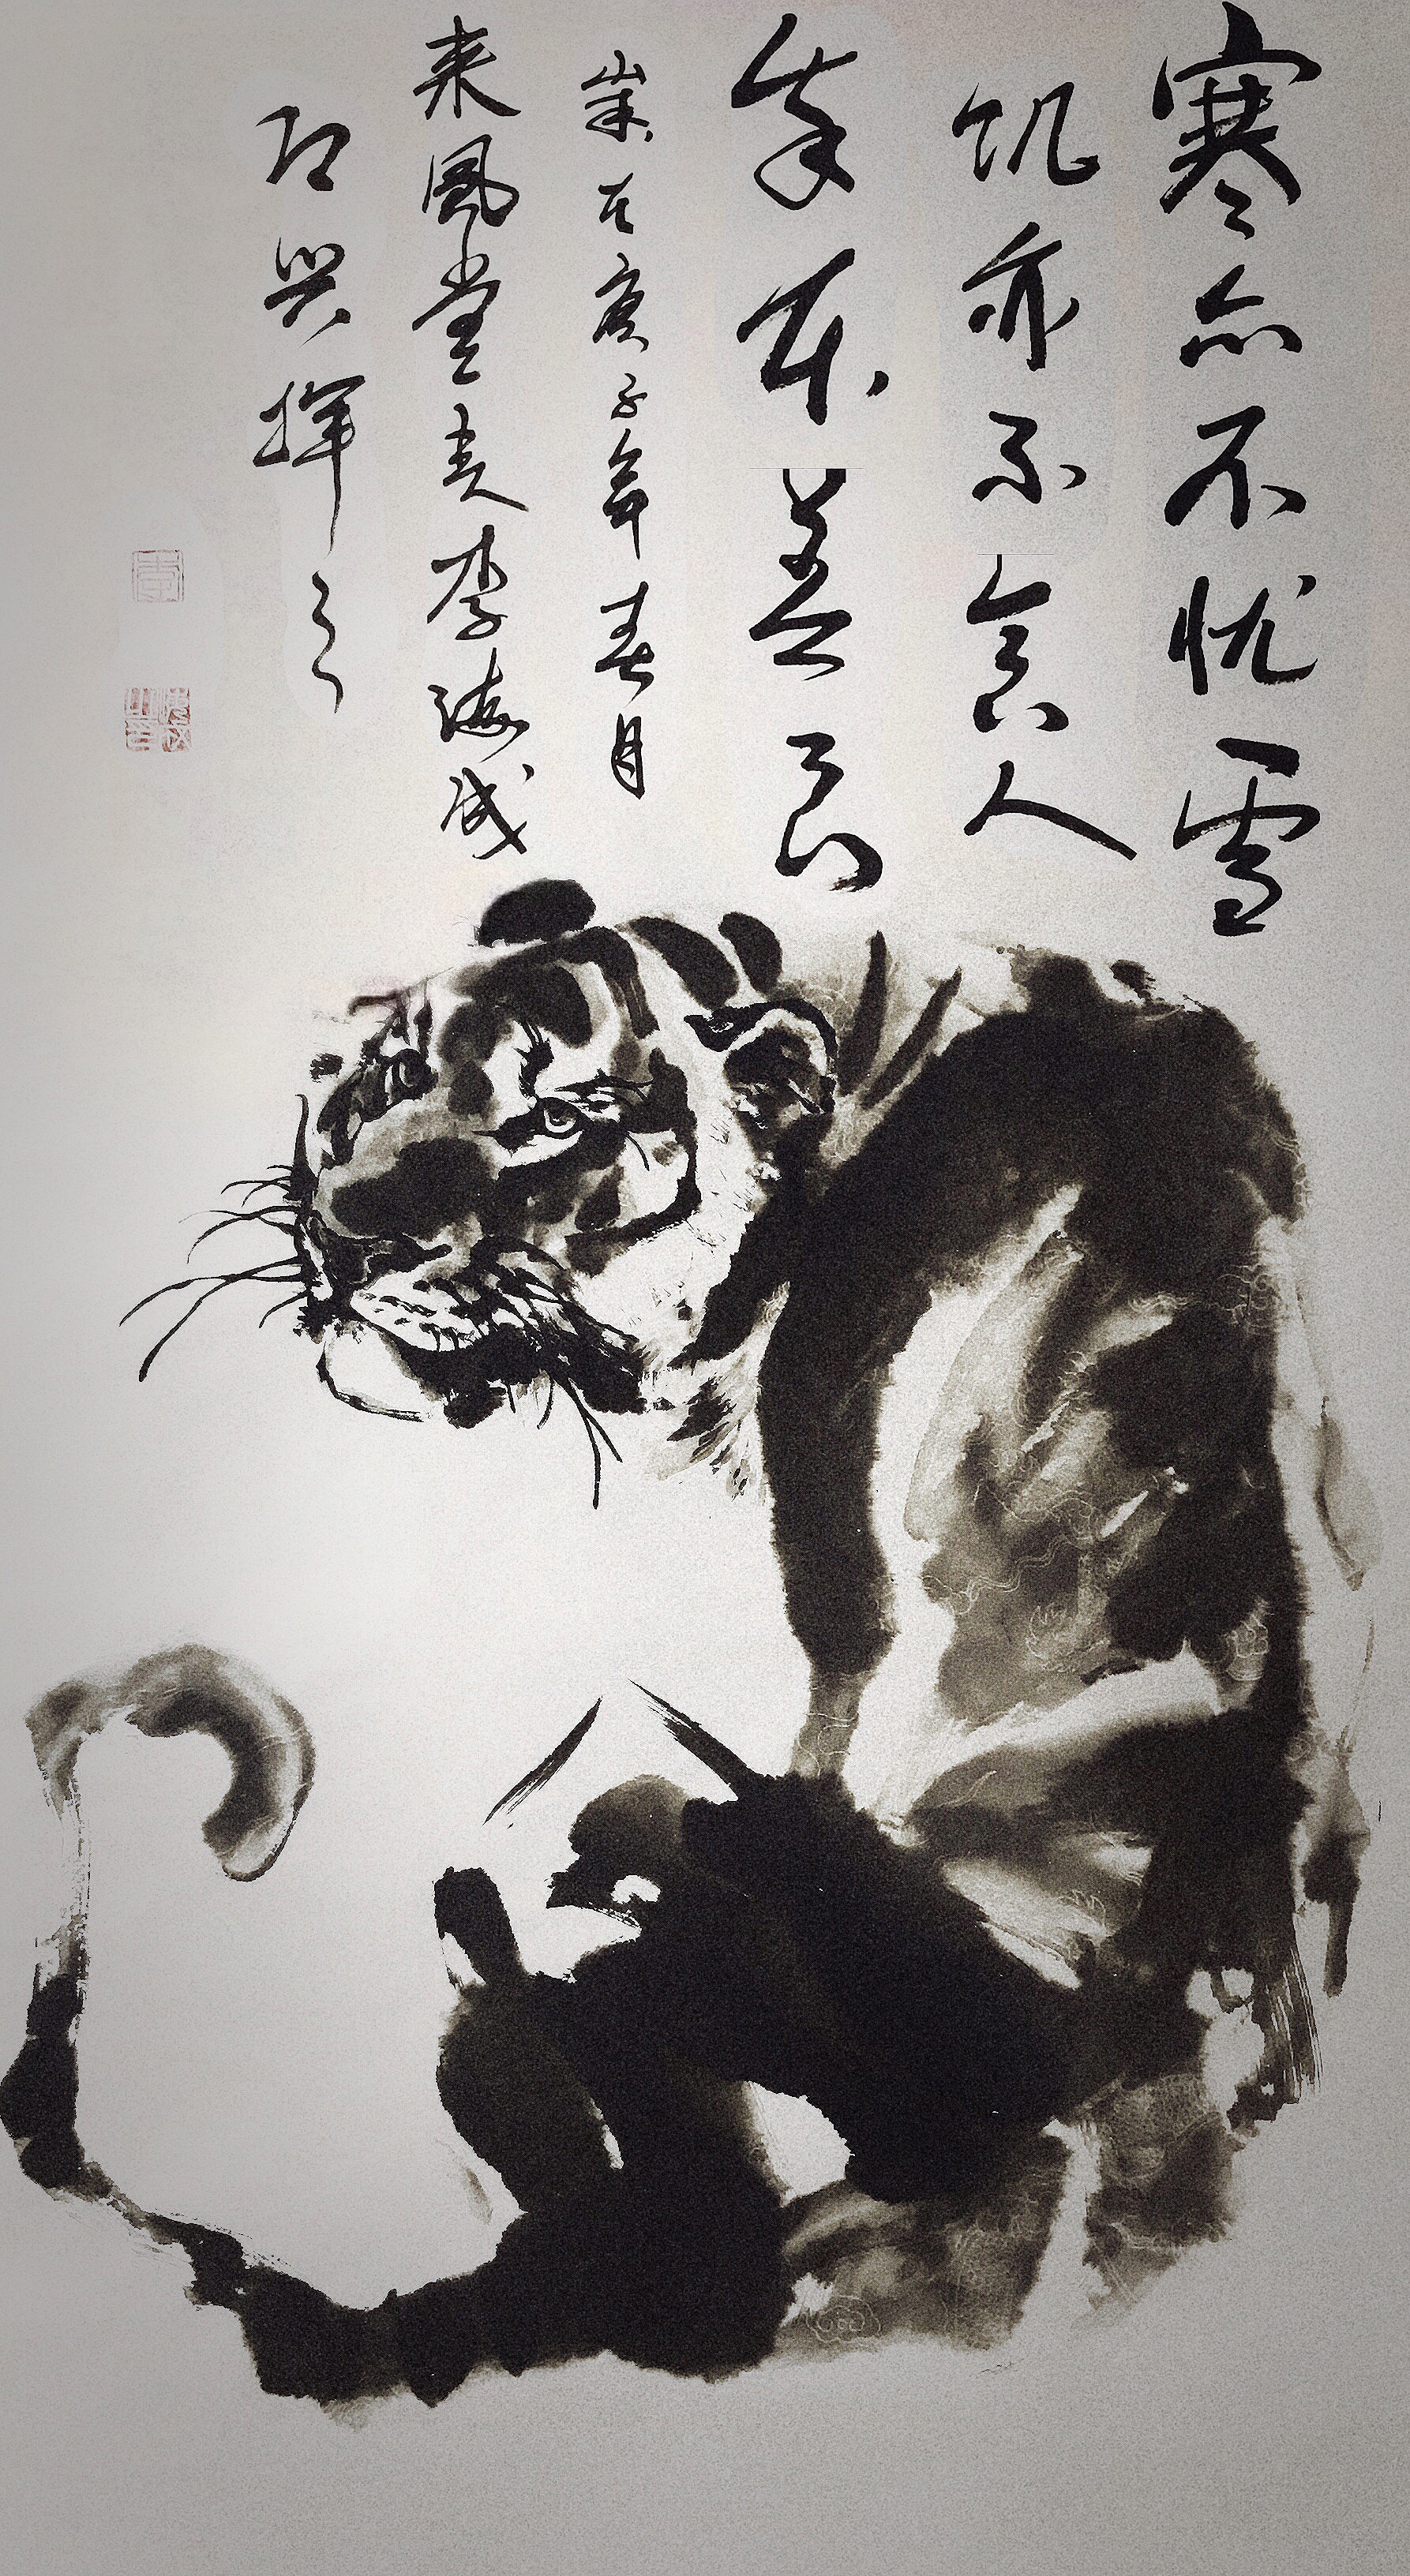 寒亦不忧雪
饥亦不食人
本善良
岁在庚子年春月
来风堂主李海成
即兴挥之